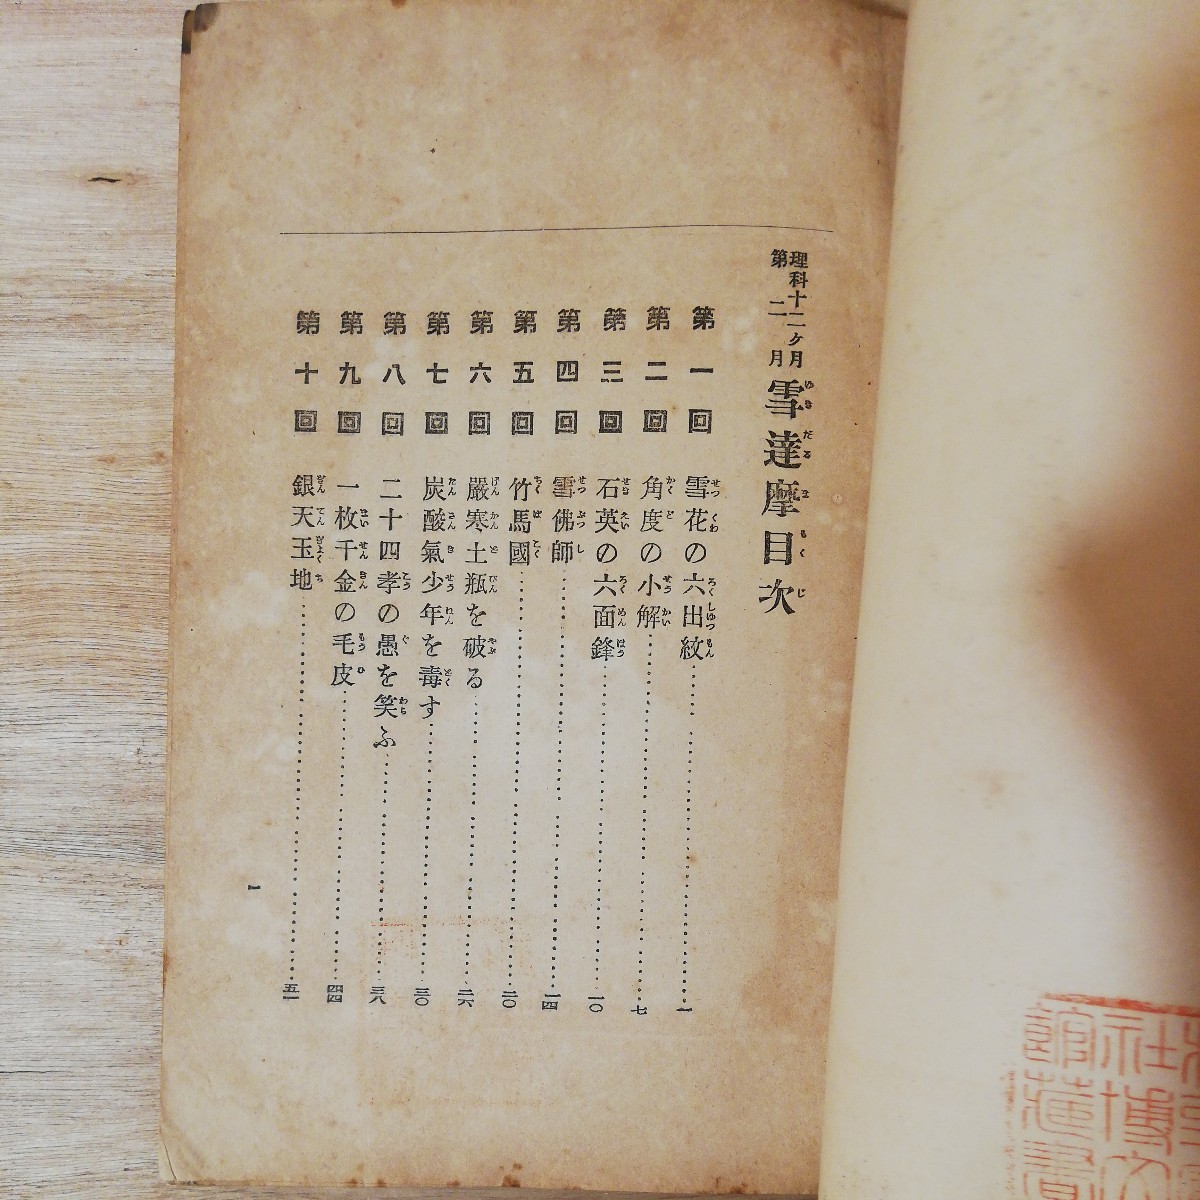 理科十二ヶ月
第二月
雪達摩目次
第一回 雪花の六出紋 一
第二回 角度の小解 七
第三回 石英の六面鋒 一〇
第四回 雪佛師 一四
第五回 竹馬國 二〇
第六回 嚴寒土瓶を破る 二六
第七回 炭酸氣少年を毒す 三〇
第八回 二十四孝の愚を笑ふ 三八
第九回 一枚千金の毛皮 四四
第十回 銀天玉地 五一
一
社博文
館藏書